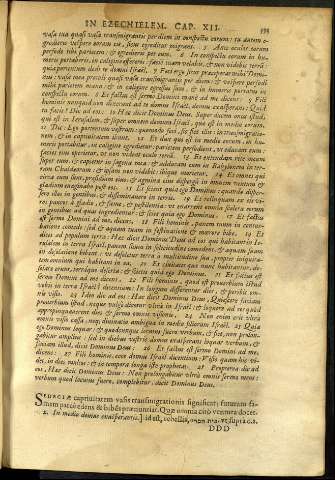 IN EZECHIELEM. CAP. XII.
vasa tua quasi vasa transmigrantis per diem in conspectu eorum: tu autem e-
gredieris vespere coram eis, sicut egreditur migrans. 5 Ante oculos eorum
perfode tibi parietem: & egredieris per eum. 6 In conspectu eorum in hu-
meris portaberis, in caligine effereris: faciem tuam velabis, & non videbis terrā:
quia portentum dedi te domui Israël. 7 Feci ergo sicut præceperat mihi Domi-
nus: vasa mea protuli quasi vasa transmigrantis per diem: & vespere perfodi
mihi parietem manu: & in caligine egressus sum, & in humeris portatus in
conspectu eorum. 8 Et factus est sermo Domini mane ad me dicens: 9 Fili
hominis nunquid non dixerunt ad te domus Israël, domus exasperans: Quid
tu facis? 10 Dic ad eos: Hæc dicit Dominus Deus. Super ducem onus istud,
qui est in Ierusalem, & super omnem domum Israël, quæ est in medio eorum.
11 Dic: Ego portentum vestrum: quomodo feci, sic fiet illis: in transmigratio-
nem, & in captivitatem ibunt. 12 Et dux qui est in medio eorum, in hu-
meris portabitur, in caligine egredietur: parietem perfodient, ut educant eum:
facies eius operietur, ut non videat oculo terrā. 13 Et extendam rete meum
super eum, & capietur in sagena mea: & adducam eum in Babylonem in ter-
ram Chaldæorum: & ipsam non videbit: ibique morietur. 14 Et omnes qui
circa eum sunt, præsidium eius, & agmina eius dispergā in omnem ventum: &
gladium evaginabo post eos. 15 Et scient quia ego Dominus: quando disper-
sero illos in gentibus, & disseminavero in terris. 16 Et relinquam ex eis vi-
ros paucos à gladio, & fame, & pestilentia: ut enarrent omnia scelera eorum
in gentibus ad quas ingredientur: & scient quia ego Dominus. 17 Et factus
est sermo Domini ad me, dicens: 18 Fili hominis, panem tuum in contur-
batione comede: sed & aquam tuam in festinatione & mœrore bibe. 19 Et
dices ad populum terræ: Hæc dicit Dominus Deus ad eos qui habitant in Ie-
rusalem in terra Israël: panem suum in sollicitudine comedent, & aquam suam
in desolatione bibent: ut desoletur terra à multitudine sua, propter iniquita-
tem omnium qui habitant in ea. 20 Et civitates quæ nunc habitantur, de-
solatæ erunt, terráque deserta: & scietis quia ego Dominus. 21 Et factus est
sermo Domini ad me, dicens. 22 Fili hominis, quod est proverbium istud
vobis in terra Israël? dicentium: In longum differentur dies: & peribit om-
nis visio. 23 Ideo dic ad eos: Hæc dicit Dominus Deus: Quiescere faciam
proverbium istud, neque vulgò dicetur ultrà in Israël: & loquere ad eos quòd
appropinquaverint dies & sermo omnis visionis. 24 Non enim erit ultrà
omnis visio cassa, neque divinatio ambigua in medio filiorum Israël. 25 Quia
ego Dominus loquar: & quodcunque locutus fuero verbum, & fiet, non prolon-
gabitur amplius: sed in diebus vestris domus exasperans loquar verbum, &
faciam illud, dicit Dominus Deus. 26 Et factus est sermo Domini ad me,
dicens: 27 Fili hominis, ecce domus Israël dicentium: Visio quam hic vi-
det, in dies multos: & in tempora longa iste prophetat. 28 Propterea dic ad
eos: Hæc dicit Dominus Deus: Non prolongabitur ultrà omnis sermo meus:
verbum quod locutus fuero, complebitur, dicit Dominus Deus.
captivitatem vasis transmigrationis significent; futuram fa-
mem parcè edens & bibēs prænuntiat. Quæ omnia citò ventura docet.
2. In medio domus exasperantis.] id est, rebellis,
DDD